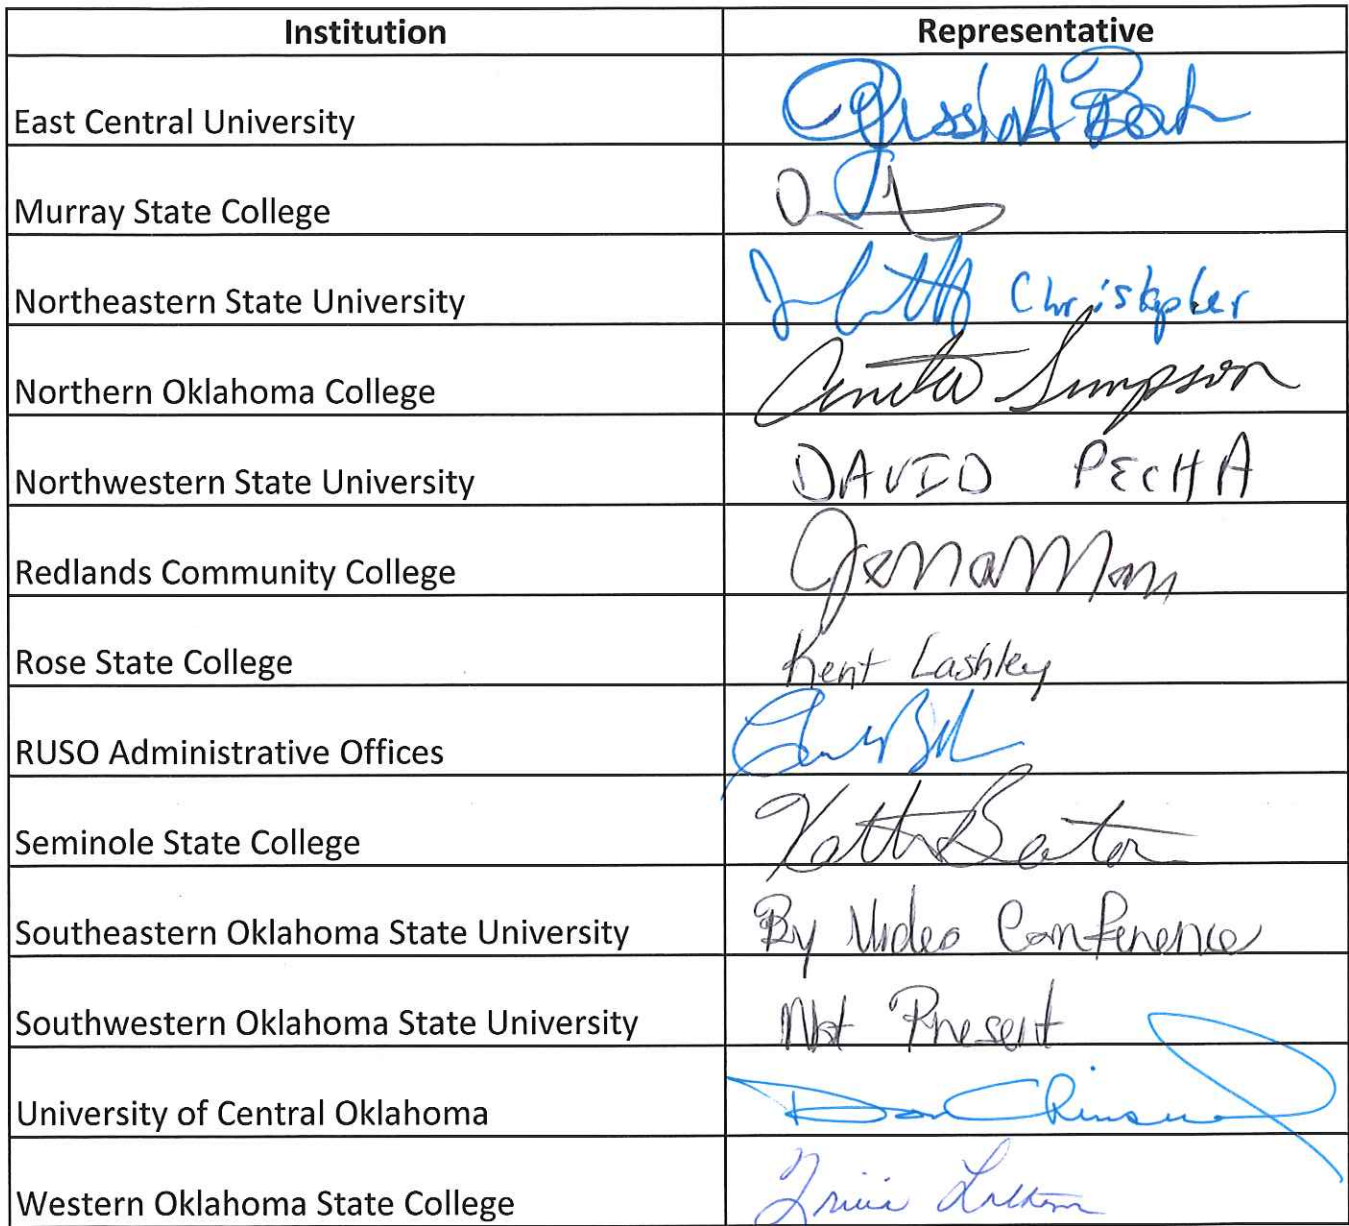 Institution Representative
East Central University
Murray State College
Northeastern State University Christopher
Northern Oklahoma College Anita Simpson
Northwestern State University DAVID PECHA
Redlands Community College Jena Marr
Rose State College Kent Lashley
RUSO Administrative Offices
Seminole State College
Southeastern Oklahoma State University By Video Conference
Southwestern Oklahoma State University Not Present
University of Central Oklahoma Don
Western Oklahoma State College Tricia Latham